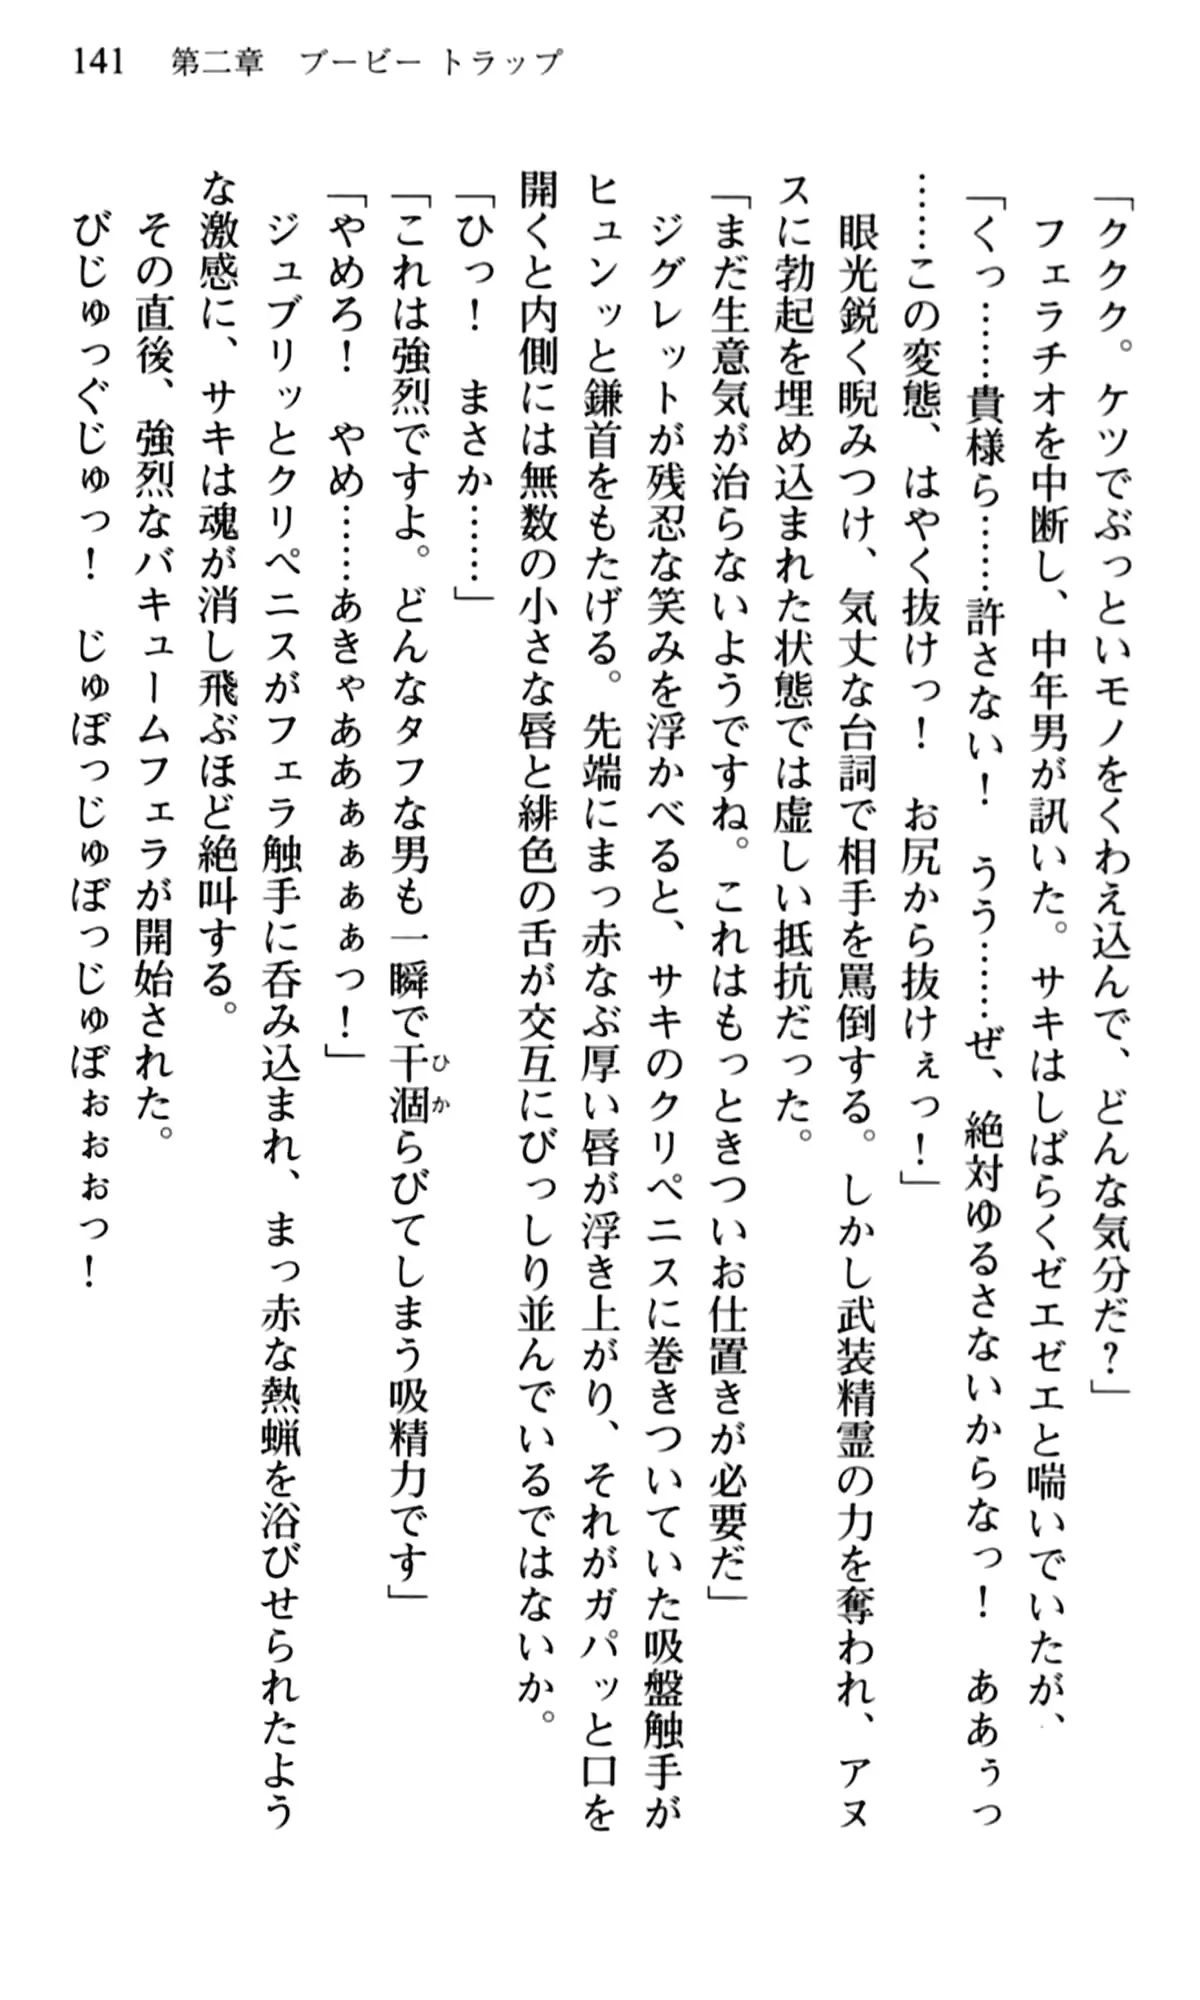 141　第二章　ブービー トラップ
「ククク。ケツでぶっといモノをくわえ込んで、どんな気分だ？」
フェラチオを中断し、中年男が訊いた。サキはしばらくゼエゼエと喘いでいたが、
「くっ……貴様ら……許さない！　うう……ぜ、絶対ゆるさないからなっ！　ああぅっ
……この変態、はやく抜けっ！　お尻から抜けぇっ！」
眼光鋭く睨みつけ、気丈な台詞で相手を罵倒する。しかし武装精霊の力を奪われ、アヌ
スに勃起を埋め込まれた状態では虚しい抵抗だった。
「まだ生意気が治らないようですね。これはもっときついお仕置きが必要だ」
ジグレットが残忍な笑みを浮かべると、サキのクリペニスに巻きついていた吸盤触手が
ヒュンッと鎌首をもたげる。先端にまっ赤なぶ厚い唇が浮き上がり、それがガパッと口を
開くと内側には無数の小さな唇と緋色の舌が交互にびっしり並んでいるではないか。
「ひっ！　まさか……」
「これは強烈ですよ。どんなタフな男も一瞬で干涸らびてしまう吸精力です」
ひか
「やめろ！　やめ……あきゃああぁぁぁぁっ！」
ジュブリッとクリペニスがフェラ触手に呑み込まれ、まっ赤な熱蝋を浴びせられたよう
な激感に、サキは魂が消し飛ぶほど絶叫する。
その直後、強烈なバキュームフェラが開始された。
びじゅっぐじゅっ！　じゅぼっじゅぼっじゅぼぉぉぉっ！